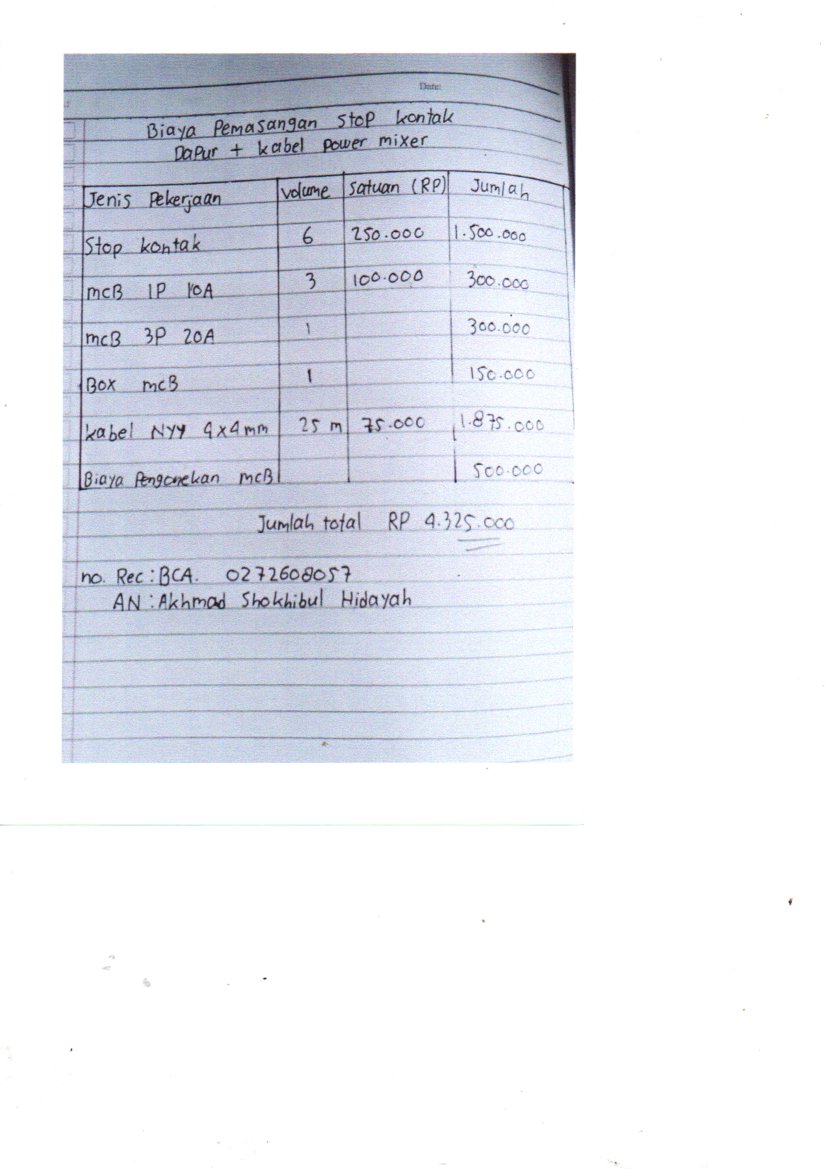 Date:
Biaya Pemasangan Stop kontak
Dapur + kabel power mixer
Jenis Pekerjaan volume Satuan (RP) Jumlah
Stop kontak 6 250.000 1.500.000
mcB 1P 10A 3 100.000 300.000
mcB 3P 20A 1 300.000
Box mcB 1 150.000
kabel NYY 4x4mm 25 m 75.000 1.875.000
Biaya Pengonekan mcB 500.000
Jumlah total RP 4.325.000
no. Rec : BCA. 0272608057
AN : Akhmad Shokhibul Hidayah